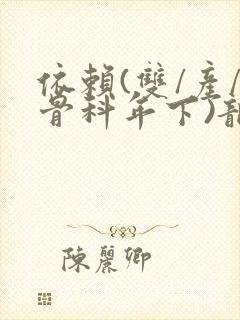 依賴(雙/產/
骨科年下)龍
陳麗卿